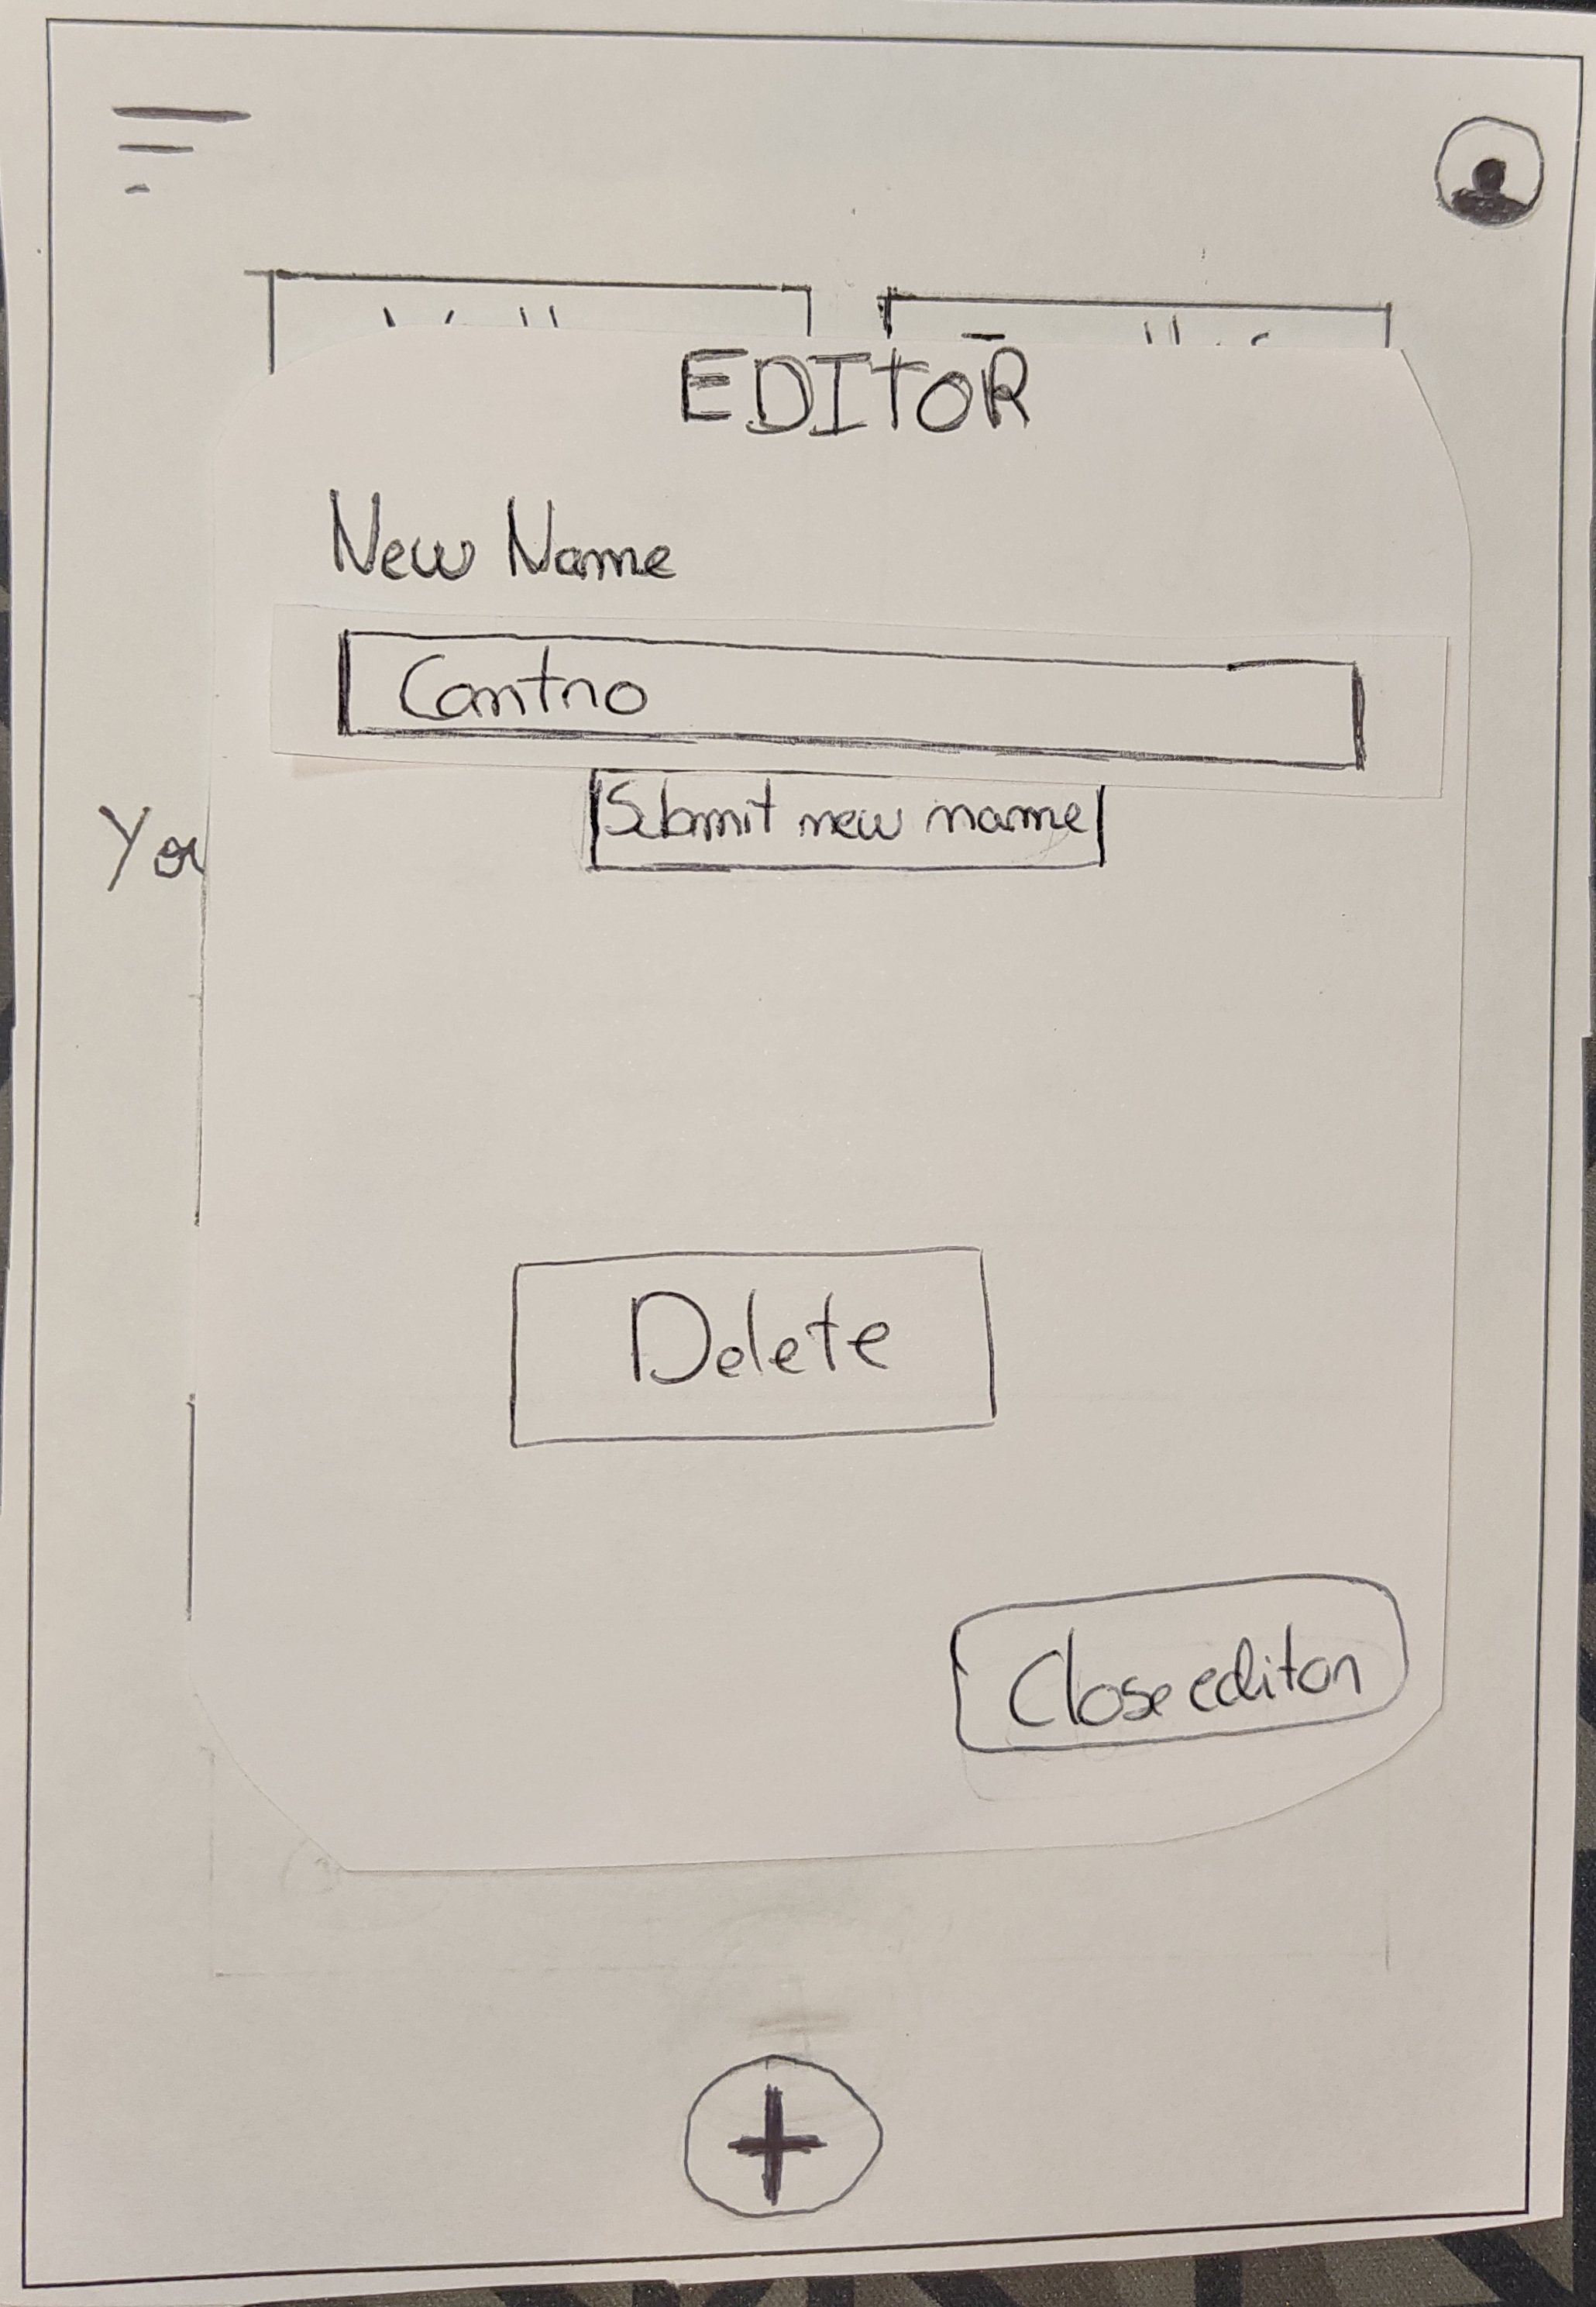 EDITOR
New Name
Contno
Submit new name
You
Delete
Close editor